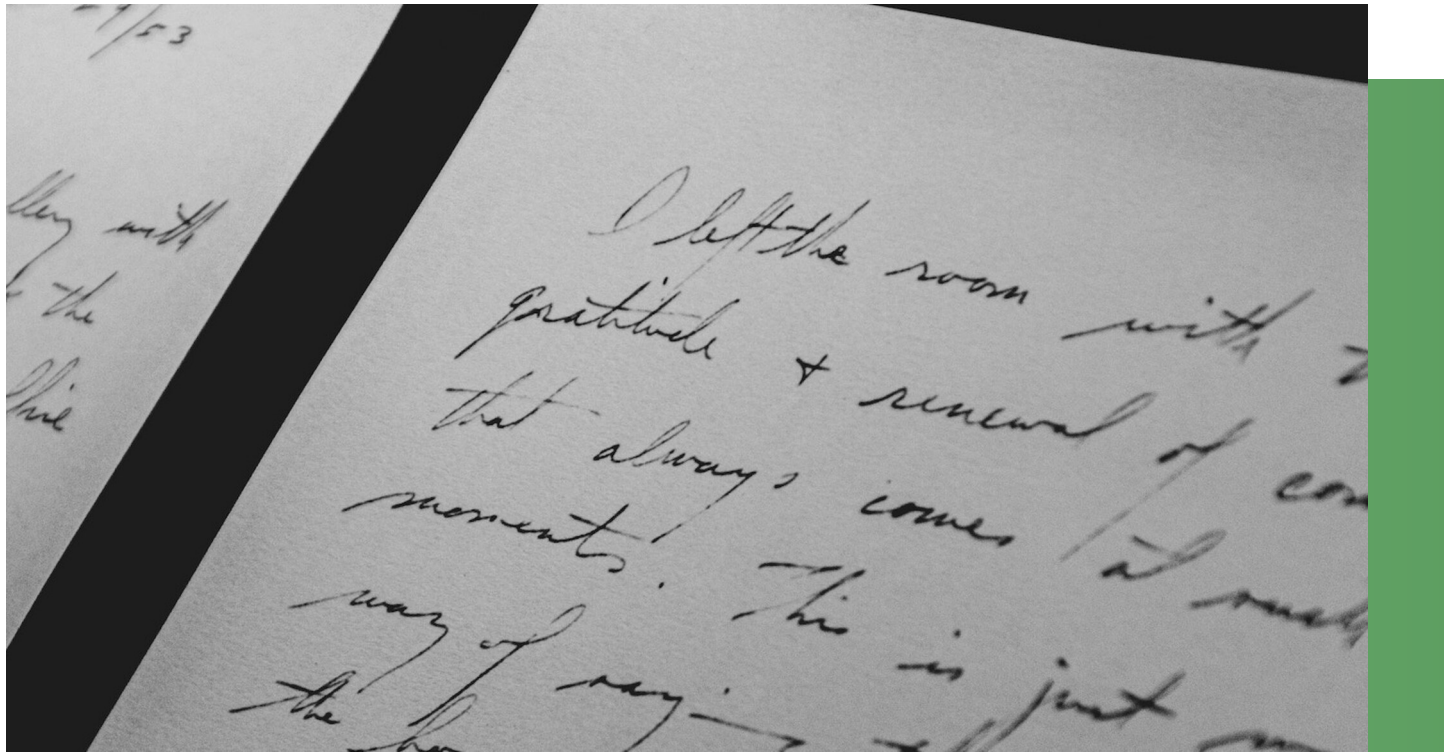 /53
with
the
I left the room with
gratitude & renewal of
that always comes at such
moments. This is just
way of saying
the